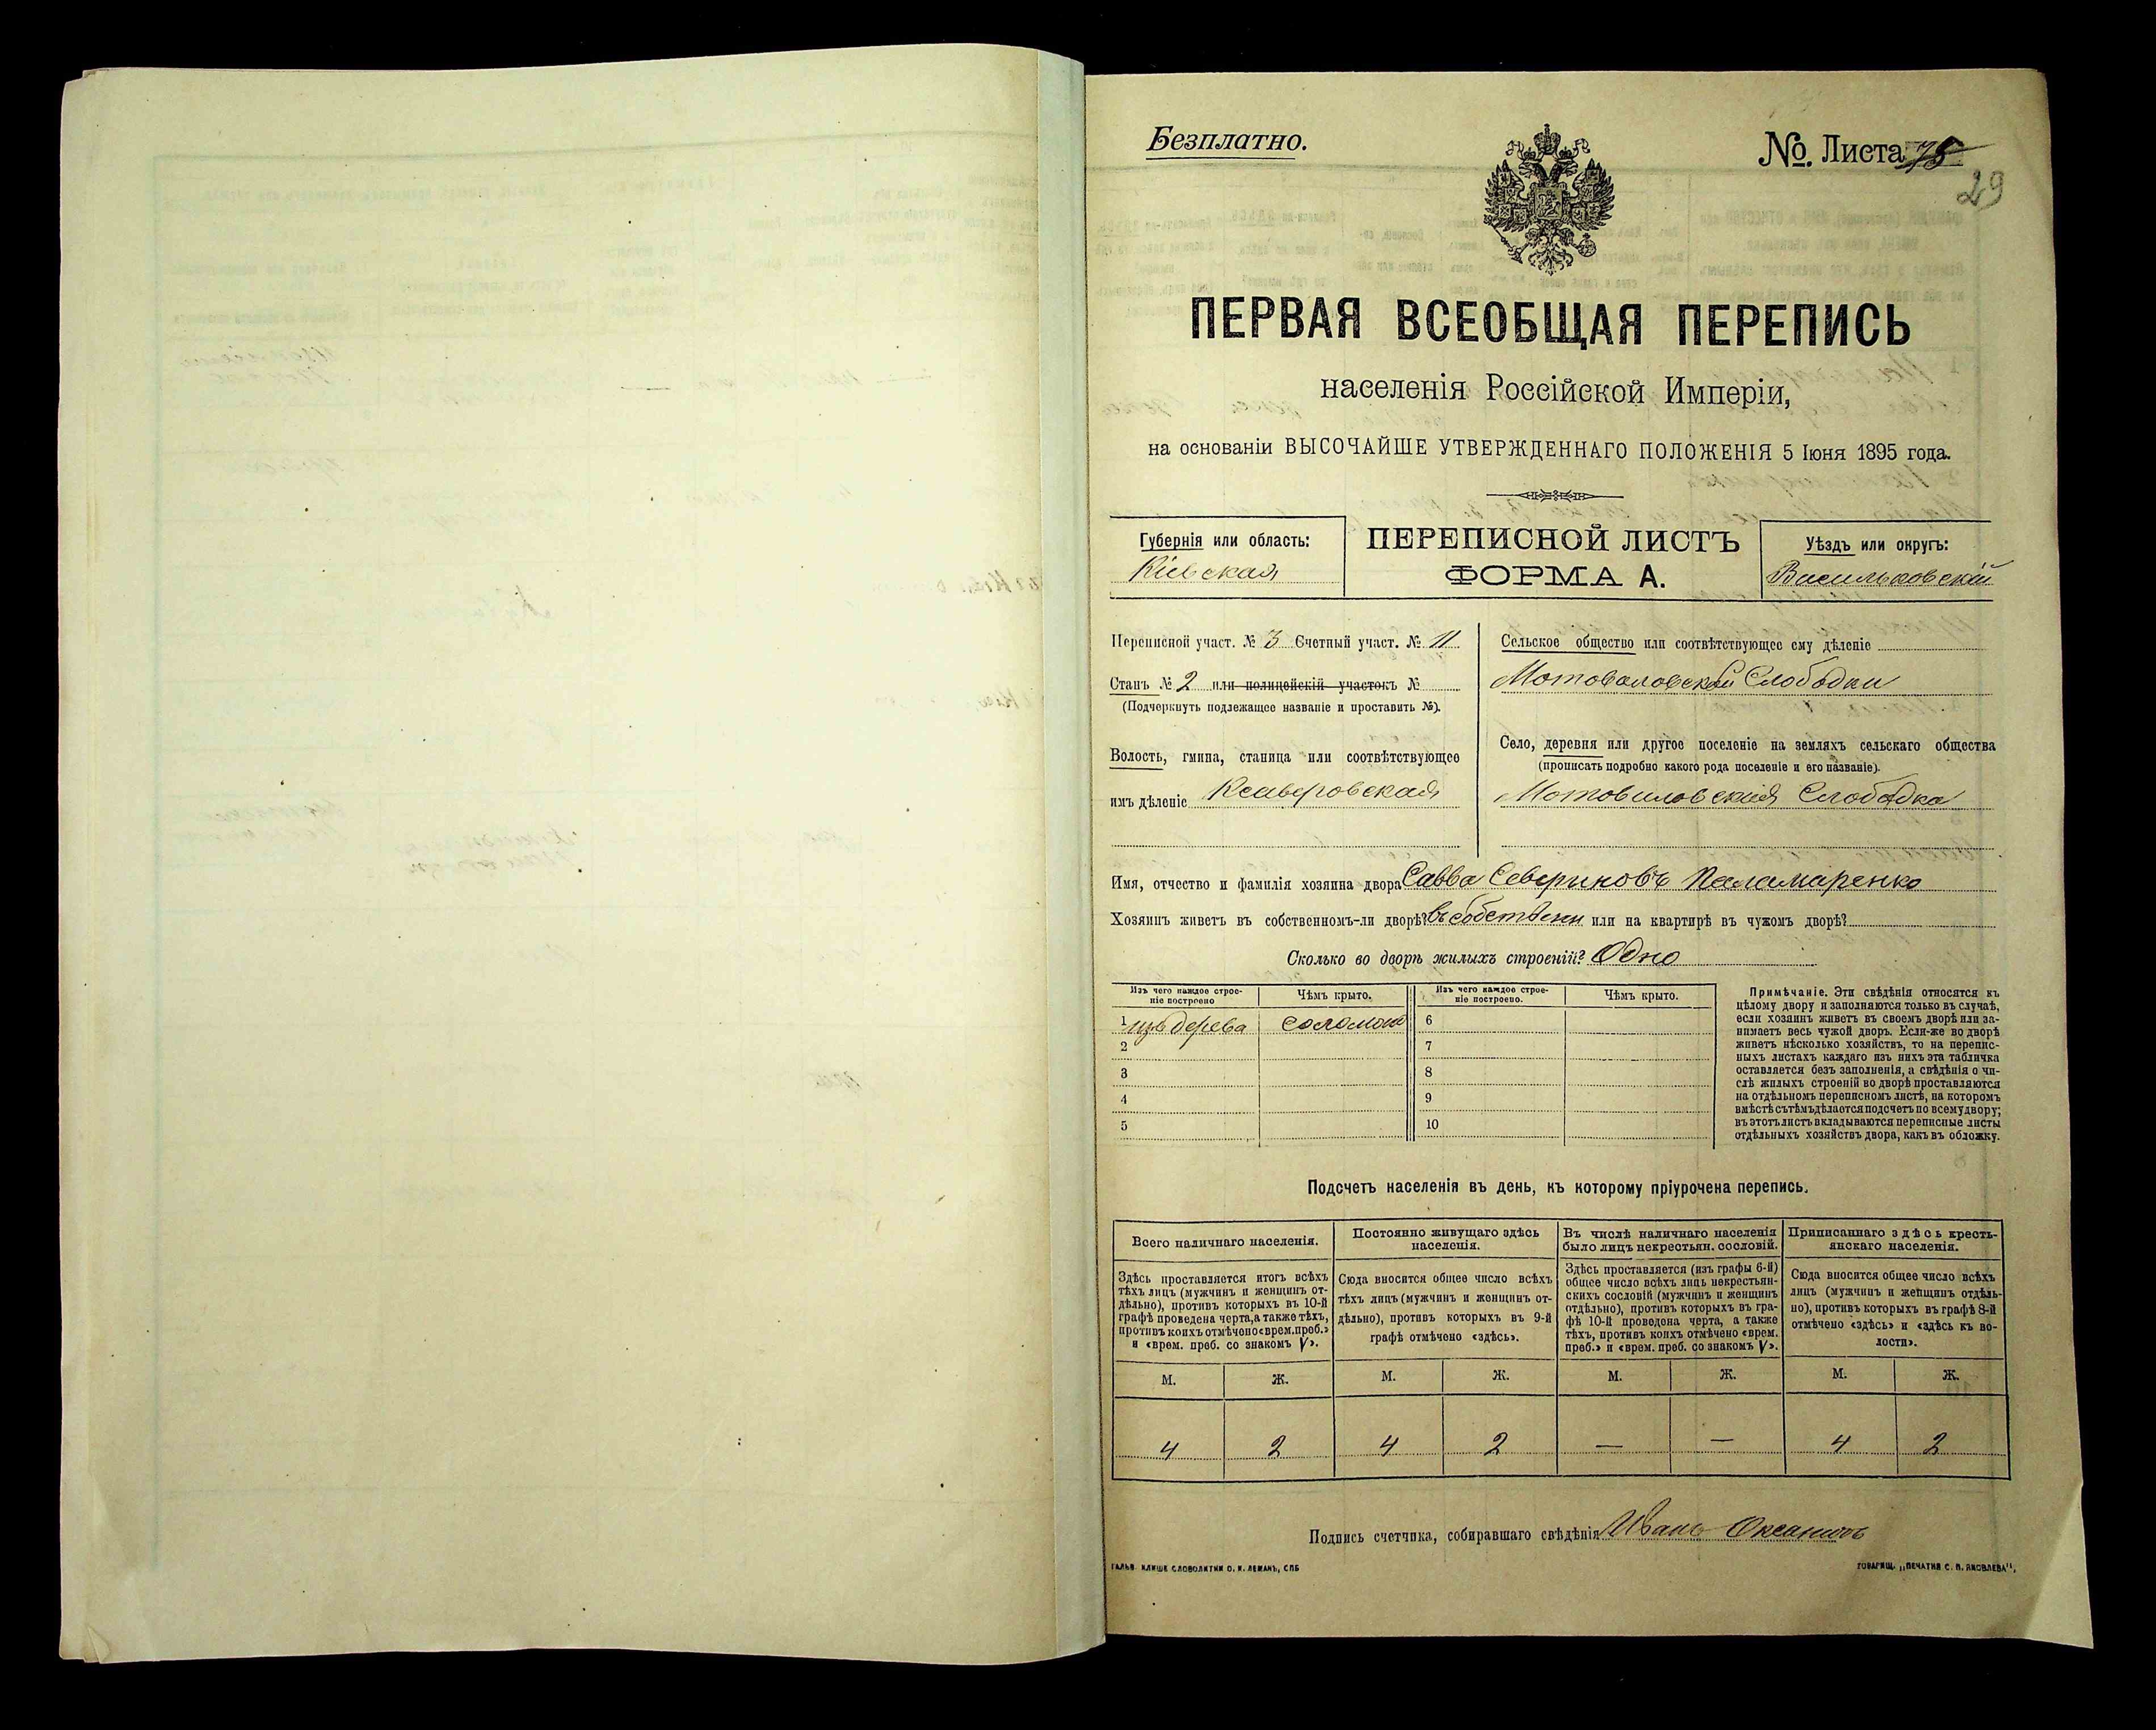 Безплатно.
№. Листа 75
29
ПЕРВАЯ ВСЕОБЩАЯ ПЕРЕПИСЬ
населенія Россійской Имперіи,
на основаніи ВЫСОЧАЙШЕ УТВЕРЖДЕННАГО ПОЛОЖЕНІЯ 5 Іюня 1895 года.
Губернія или область:
Кіевская
ПЕРЕПИСНОЙ ЛИСТЪ
ФОРМА А.
Уѣздъ или округъ:
Васильковскій
Переписной участ. № 3 Счетный участ. № 11
Станъ № 2 или полицейскій участокъ №
(Подчеркнуть подлежащее названіе и проставить №).
Волость, гмина, станица или соотвѣтствующее
имъ дѣленіе Ксаверовская
Сельское общество или соотвѣтствующее ему дѣленіе
Мотовиловской Слободки
Село, деревня или другое поселеніе на земляхъ сельскаго общества
(прописать подробно какого рода поселеніе и его названіе).
Мотовиловская Слободка
Имя, отчество и фамилія хозяина двора Савва Севериновъ Паламаренко
Хозяинъ живетъ въ собственномъ-ли дворѣ? въ собствен или на квартирѣ въ чужомъ дворѣ?
Сколько во дворѣ жилыхъ строеній? Одно
Изъ чего каждое строе-
ніе построено
Чѣмъ крыто.
Изъ чего каждое строе-
ніе построено.
Чѣмъ крыто.
1 изъ дерева соломою 6
2 7
3 8
4 9
5 10
Примѣчаніе. Эти свѣдѣнія относятся къ
цѣлому двору и заполняются только въ случаѣ,
если хозяинъ живетъ въ своемъ дворѣ или за-
нимаетъ весь чужой дворъ. Если-же во дворѣ
живетъ нѣсколько хозяйствъ, то на перепис-
ныхъ листахъ каждаго изъ нихъ эта табличка
оставляется безъ заполненія, а свѣдѣнія о чи-
слѣ жилыхъ строеній во дворѣ проставляются
на отдѣльномъ переписномъ листѣ, на которомъ
вмѣстѣ съ тѣмъ дѣлается подсчетъ по всему двору;
въ этотъ листъ вкладываются переписные листы
отдѣльныхъ хозяйствъ двора, какъ въ обложку.
Подсчетъ населенія въ день, къ которому пріурочена перепись.
Всего наличнаго населенія.
Здѣсь проставляется итогъ всѣхъ
тѣхъ лицъ (мужчинъ и женщинъ от-
дѣльно), противъ которыхъ въ 10-й
графѣ проведена черта, а также тѣхъ,
противъ коихъ отмѣчено «врем. преб.»
и «врем. преб. со знакомъ V».
Постоянно живущаго здѣсь
населенія.
Сюда вносится общее число всѣхъ
тѣхъ лицъ (мужчинъ и женщинъ от-
дѣльно), противъ которыхъ въ 9-й
графѣ отмѣчено «здѣсь».
Въ числѣ наличнаго населенія
было лицъ некрестьян. сословій.
Здѣсь проставляется (изъ графы 6-й)
общее число всѣхъ лицъ некрестьян-
скихъ сословій (мужчинъ и женщинъ
отдѣльно), противъ которыхъ въ гра-
фѣ 10-й проведена черта, а также
тѣхъ, противъ коихъ отмѣчено «врем.
преб.» и «врем. преб. со знакомъ V».
Приписаннаго здѣсь кресть-
янскаго населенія.
Сюда вносится общее число всѣхъ
лицъ (мужчинъ и женщинъ отдѣль-
но), противъ которыхъ въ графѣ 8-й
отмѣчено «здѣсь» и «здѣсь къ во-
лости».
М. Ж. М. Ж. М. Ж. М. Ж.
4 2 4 2 — — 4 2
Подпись счетчика, собиравшаго свѣдѣнія Иванъ
ГАЛЬВ. КЛИШЕ СЛОВОЛИТНИ О. И. ЛЕМАНЪ, СПБ
ТОВАРИЩ. „ПЕЧАТНЯ С. П. ЯКОВЛЕВА",